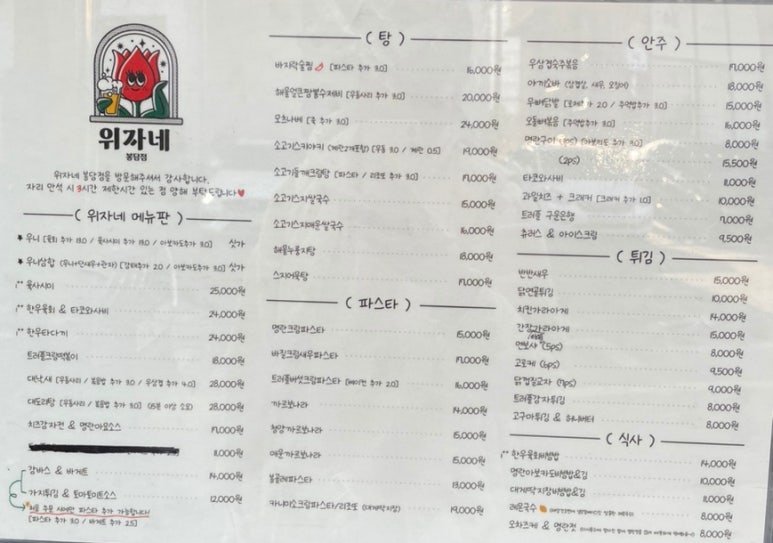 위자네
봉담점
위자네 봉담점을 방문해주셔서 감사합니다.
자리 만석 시 3시간 제한시간 있는 점 양해 부탁드립니다♥
( 위자네 메뉴판 )
★ 우니 [육회 추가 13.0 / 육사시미 추가 13.0 / 아보카도추가 3.0] 싯가
★ 우니삼합 (우니+단새우+관자) [감태추가 2.0 / 아보카도추가 3.0] 싯가
육사시미 25,000원
한우육회 & 타코와사비 24,000원
한우타다끼 24,000원
트러플크림떡볶이 18,000원
대낙새 [우동사리 / 볶음밥 추가 3.0 / 우삼겹 추가 4.0] 28,000원
대도리탕 [우동사리 / 볶음밥 추가 3.0] (15분 이상 소요) 28,000원
치즈감자전 & 명란마요소스 17,000원
11,000원
감바스 & 바게트 14,000원
가지튀김 & 토마토미트소스 12,000원
메뉴 주문 시에만 파스타 추가 가능합니다!
[파스타 추가 3.0 / 바게트 추가 2.5]
( 탕 )
바지락술찜 [파스타 추가 3.0] 16,000원
해물얼큰짬뽕수제비 [우동사리 추가 3.0] 20,000원
모츠나베 [곡 추가 3.0] 24,000원
소고기스키야키 (계란2개포함) [우동 3.0 / 계란 0.5] 19,000원
소고기들깨크림탕 [파스타 / 리조또 추가 3.0] 17,000원
소고기스지쌀국수 15,000원
소고기스지매운쌀국수 16,000원
해물누룽지탕 18,000원
스지어묵탕 17,000원
( 파스타 )
명란크림파스타 15,000원
바질크림새우파스타 17,000원
트러플버섯크림파스타 [베이컨 추가 2.0] 16,000원
까르보나라 14,000원
청양까르보나라 15,000원
매운까르보나라 15,000원
봉골레파스타 13,000원
카니미소크림파스타/리조또 (대게딱지장) 19,000원
( 안주 )
우삼겹숙주볶음 17,000원
야끼소바 (삼겹살, 새우, 오징어) 18,000원
무뼈닭발 15,000원
오돌뼈볶음 [주먹밥추가 3.0] 16,000원
명란구이 (1ps) [아보카도 추가 3.0] 8,000원
(2ps) 15,500원
타코와사비 8,000원
과일치즈 + 크래커 [크래커 추가 1.0] 10,000원
트러플 구운은행 7,000원
츄러스 & 아이스크림 9,500원
( 튀김 )
반반새우 15,000원
닭연골튀김 10,000원
치킨가라아게 14,000원
간장가라아게 15,000원
멘보샤 (5ps) 8,000원
고로케 (6ps) 9,500원
닭껍질교자 (7ps) 9,000원
트러플감자튀김 8,000원
고구마튀김 & 허니버터 8,000원
( 식사 )
한우육회비빔밥 14,000원
명란아보카도비빔밥&김 10,000원
대게딱지장비빔밥&김 11,000원
레몬국수 8,000원
오차즈케 & 명란젓 8,000원